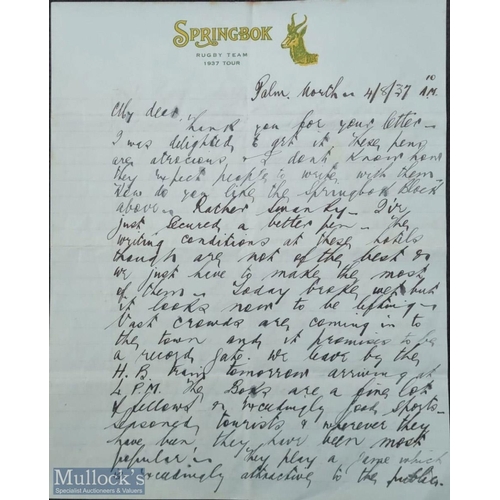 SPRINGBOK
RUGBY TEAM
1937 TOUR
Palm. North 4/8/37 10 A.M.
My dear,
Thank you for your letter -
I was delighted to get it these pens
are atrocious & I don't know how
they expect people to write with them -
How do you like the Springbok block
above - Rather swanky - I've
just secured a better pen - The
writing conditions at these hotels
though are not of the best so
we just have to make the most
of them - Today broke wet but
it looks now to be lifting -
Vast crowds are coming in to
the town and it promises to be
a record gate. We leave by the
H. B. train tomorrow arriving at
4 P.M. The Boks are a fine lot
of fellows & exceedingly good sports -
seasoned tourists & wherever they
have been they have been most
popular - They play a game which
is exceedingly attractive to the public.
Mullock's
Specialist Auctioneers & Valuers